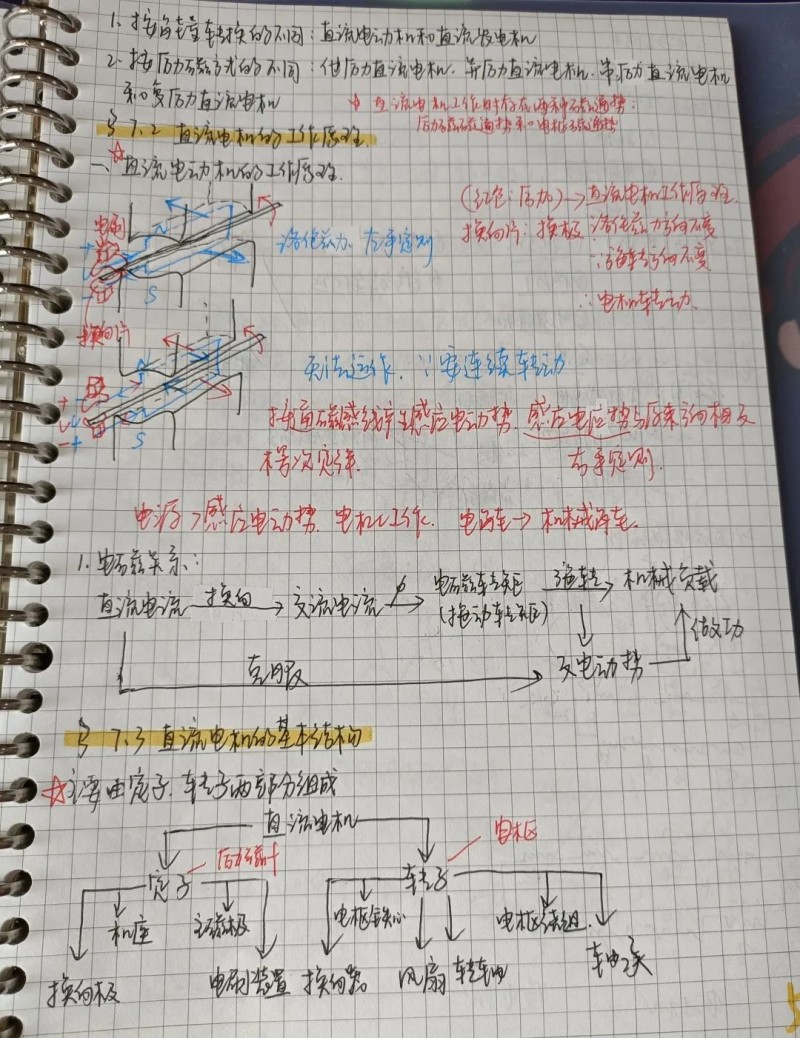 1. 按能量转换的不同：直流电动机和直流发电机
2. 按励磁方式的不同：他励直流电机、并励直流电机、串励直流电机
和复励直流电机
* 直流电机工作时存在两种磁通势：
励磁磁通势和电枢磁通势
§ 7.2 直流电机的工作原理.
☆
一、直流电动机的工作原理.
(红色：后加)→直流电机工作原理
电刷
N
洛伦兹力 左手定则
换向片：换极 ∵洛伦兹力方向不变
∵旋转方向不变
S
∴电机转动.
换向片
N
无法运作. ∵要连续转动
S
+
-
-+
楞次定律.
右手定则.
电源>感应电动势. 电机工作. 电能→机械能.
1. 电磁关系：
直流电流 换向→ 交流电流 ϕ→ 电磁转矩 旋转→ 机械负载
(拖动转矩)
做功
克服
反电动势
§ 7.3 直流电机的基本结构
☆主要由定子、转子两部分组成
直流电机
电枢
励磁
定子
转子
机座
主磁极
电枢铁心
电枢绕组
换向极
电刷装置
换向器
风扇
转轴